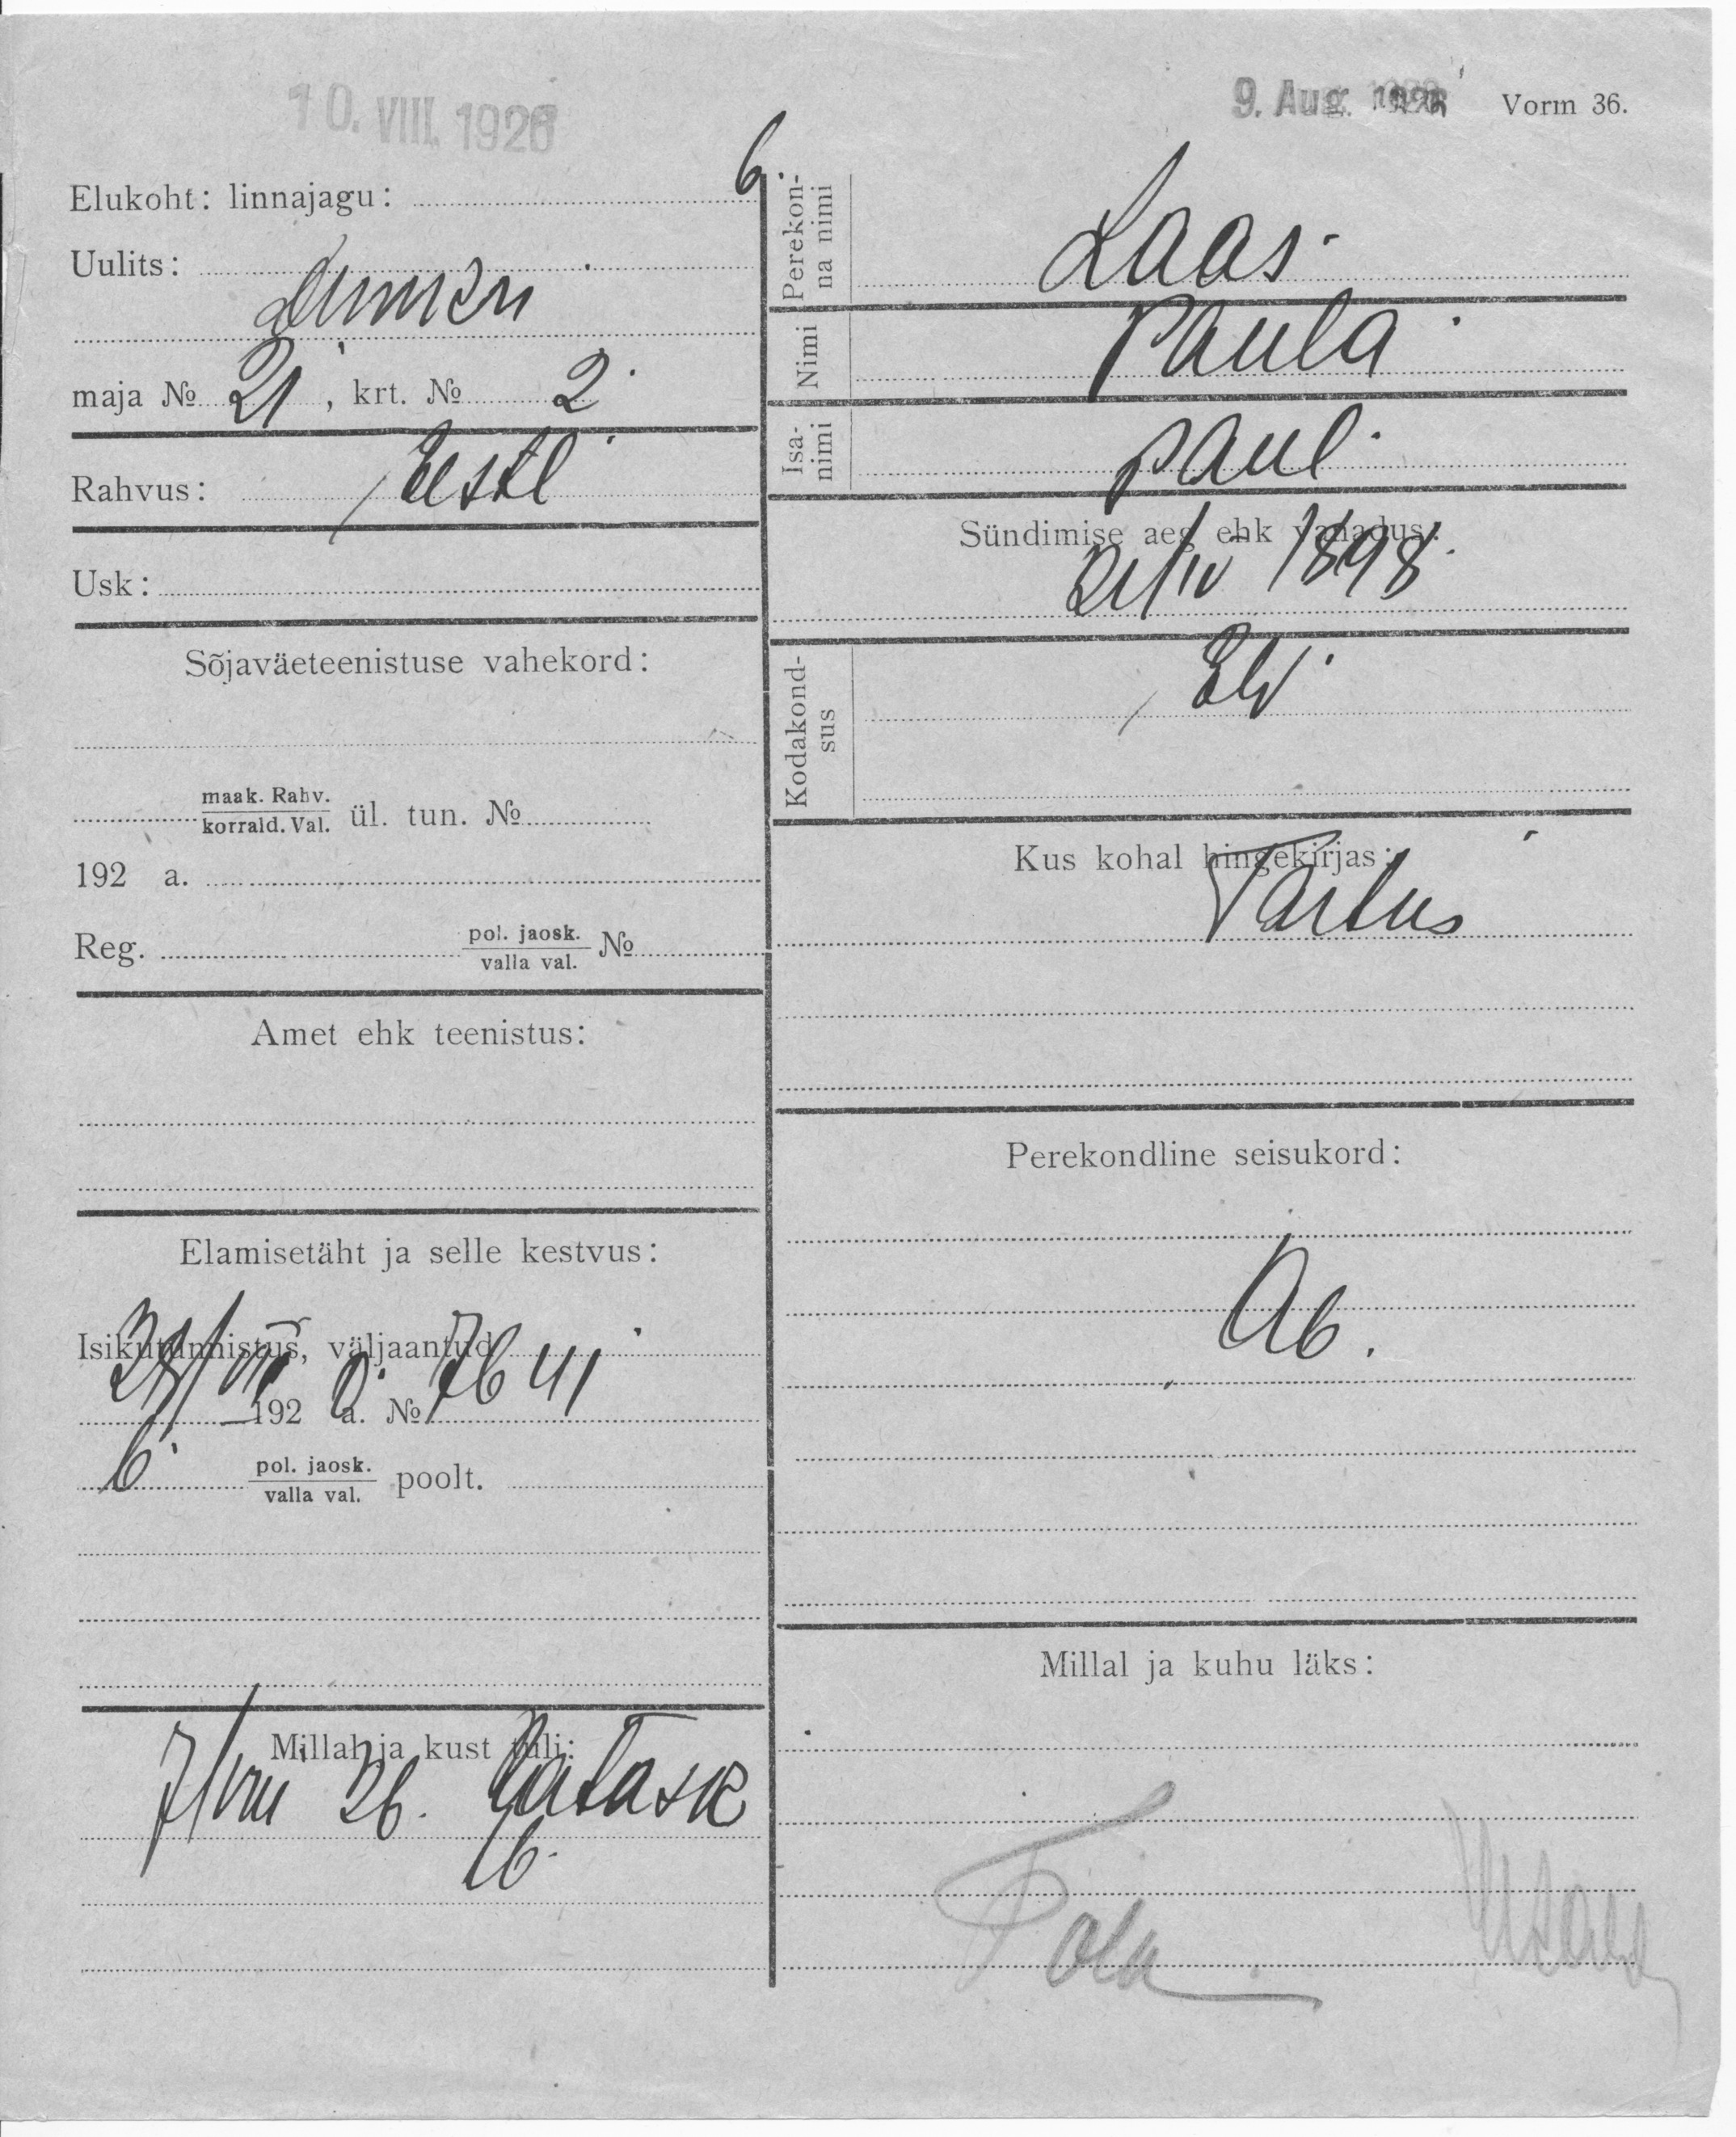 10. VIII. 1926
9. Aug. 1926 Vorm 36.
Elukoht: linnajagu: 6.
Uulits:
maja № 21, krt. № 2
Rahvus: Eesti
Usk:
Sõjaväeteenistuse vahekord:
maak. Rahv.
korrald. Val. ül. tun. №
192 a.
Reg. pol. jaosk.
valla val. №
Amet ehk teenistus:
Elamisetäht ja selle kestvus:
Isikutunnistus, väljaantud
192 0 a. № 7641
6 pol. jaosk.
valla val. poolt.
Millal ja kust tuli:
7/VIII 26.
16.
Perekon-
na nimi Laas
Nimi Paula
Isa-
nimi Paul
Sündimise aeg ehk vanadus:
21/IV 1898
Kodakond-
sus EW
Kus kohal hingekirjas:
Tartus
Perekondline seisukord:
Ab.
Millal ja kuhu läks: